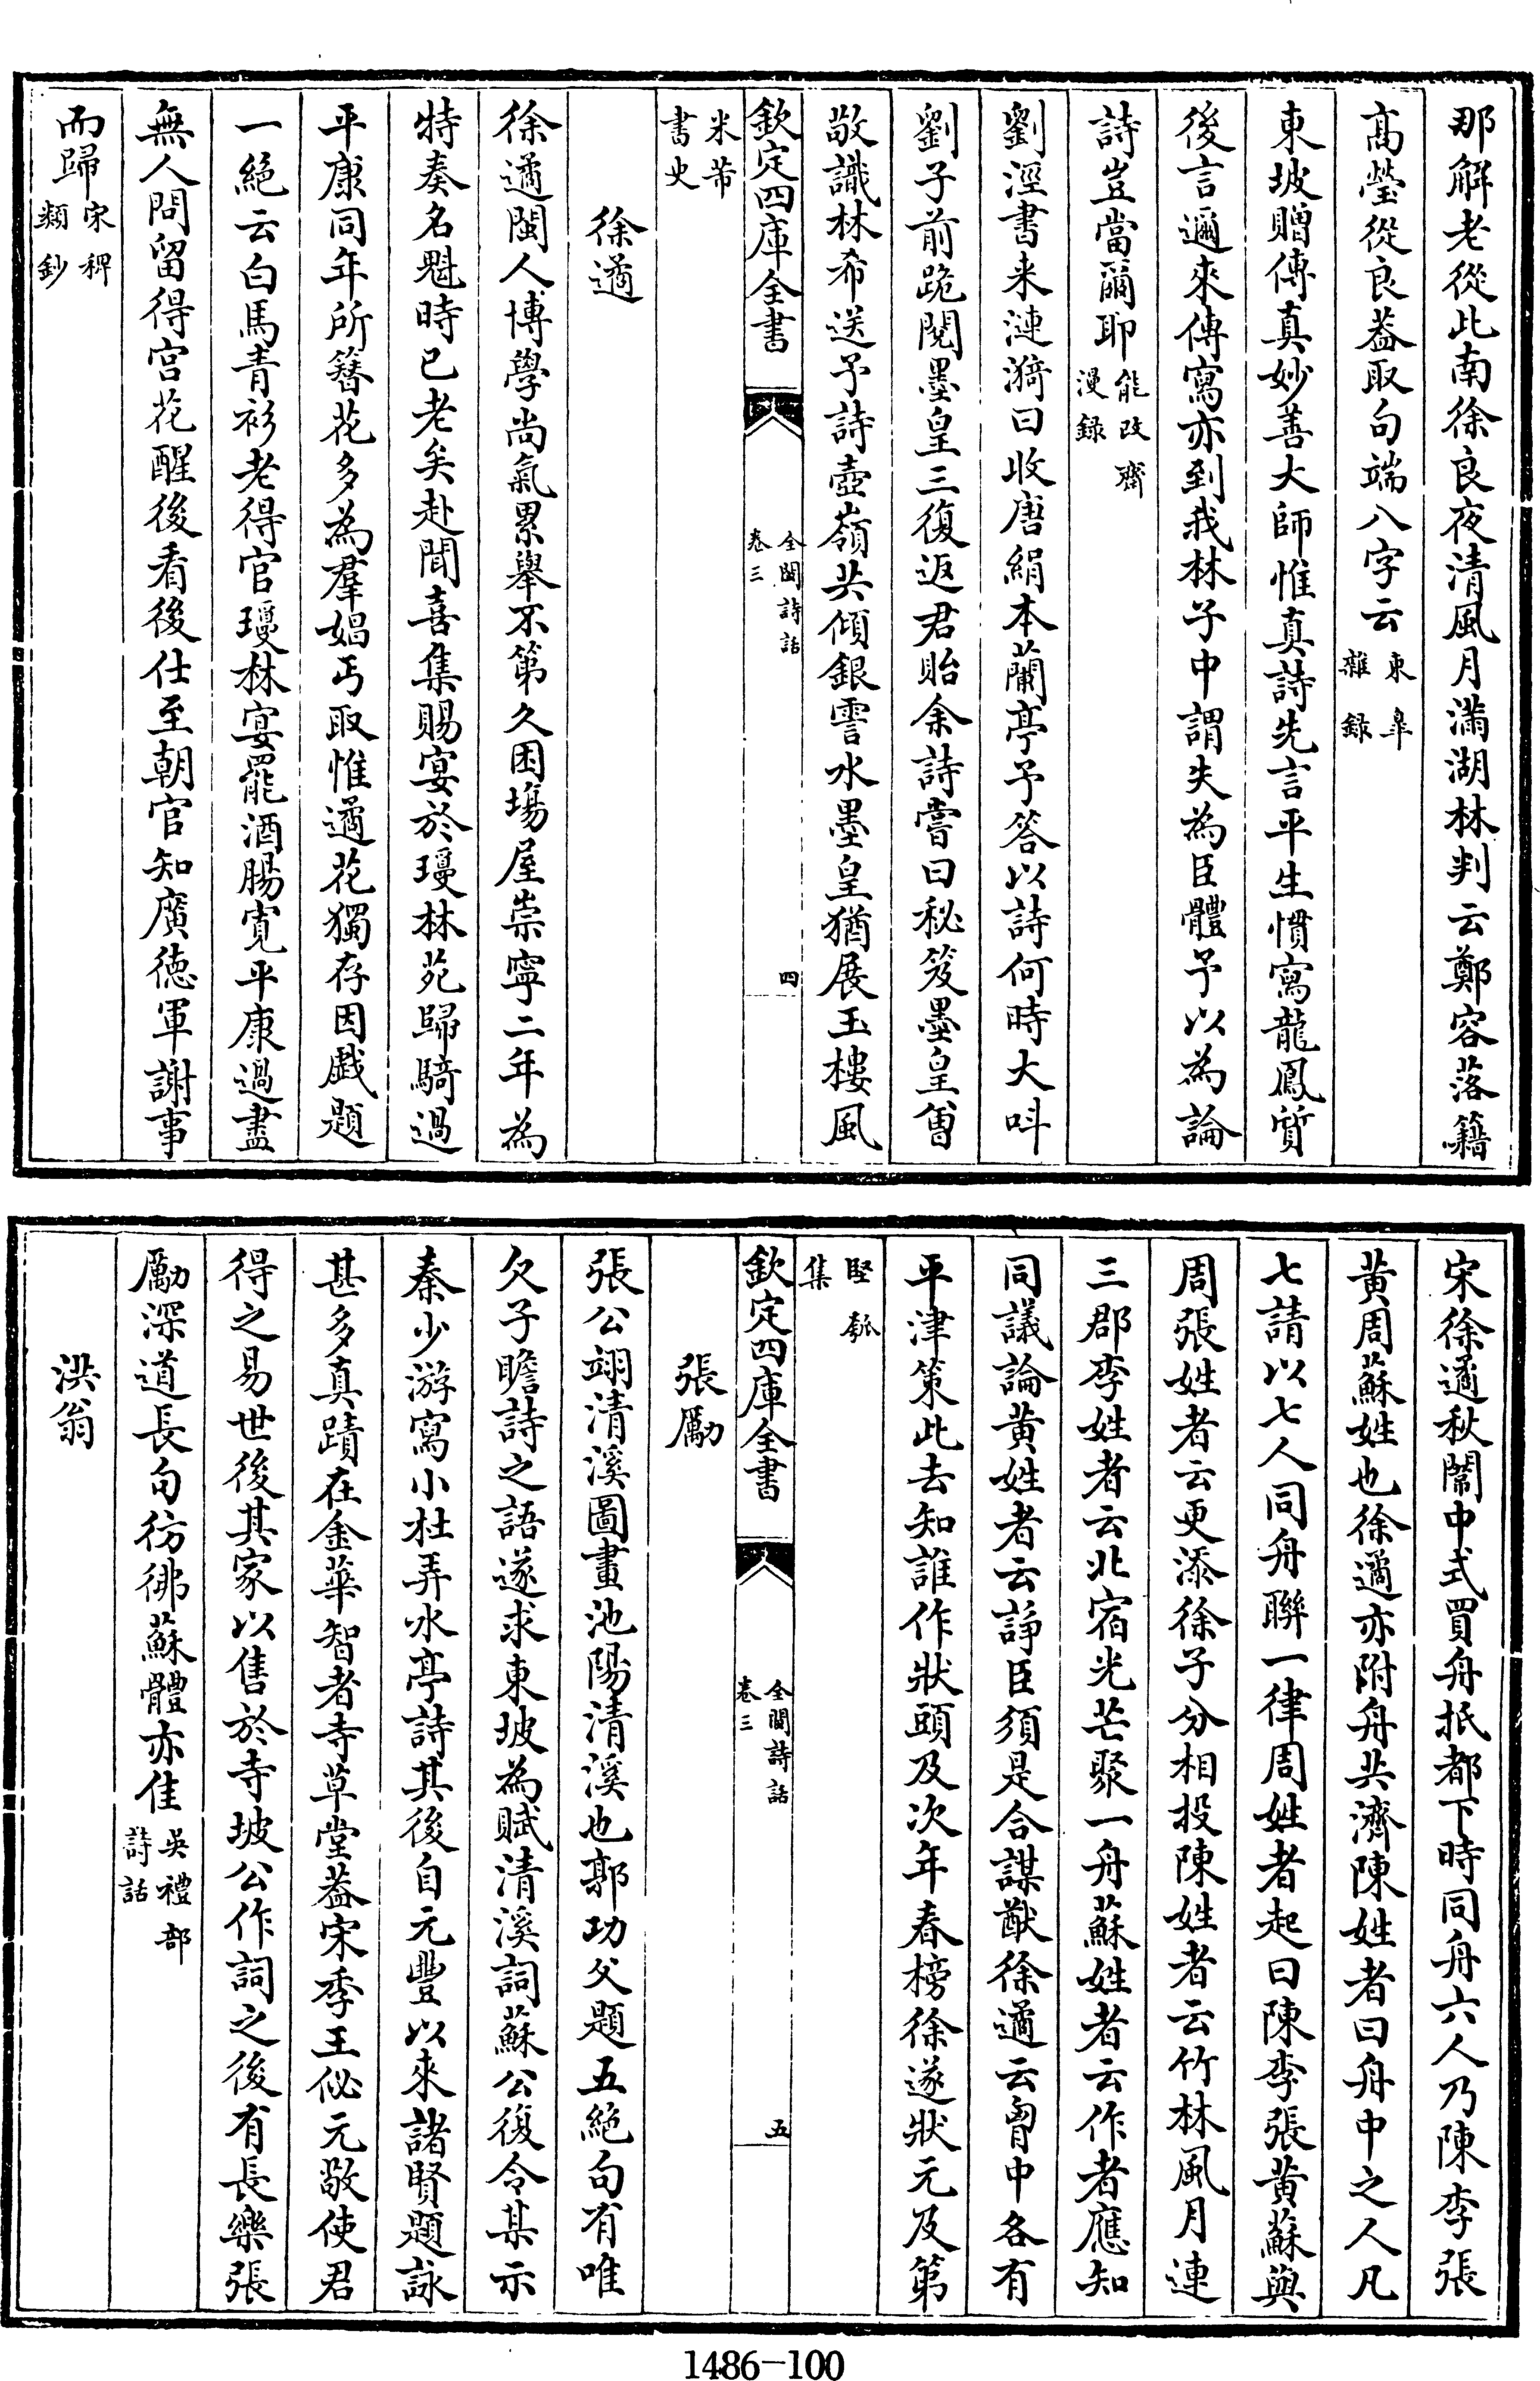 那解老從此南徐良夜清風月滿湖林判云鄭容落籍
髙瑩從良葢取句端八字云東臯雜録
東坡贈傳真妙善大師惟真詩先言平生慣寫龍鳳質
後言邇來傳寫亦到我林子中謂失為臣體予以為論
詩豈當爾耶能改齋漫録
劉涇書来漣漪曰收唐絹本蘭亭予答以詩何時大呌
劉子前跪閱墨皇三復返君貽余詩嘗曰秘笈墨皇曽
敬識林希送予詩壺嶺共傾銀雲水墨皇猶展玉樓風
欽定四庫全書 全閩詩話 卷三 四
米芾書史
徐遹
徐遹閩人博學尚氣累舉不第久困場屋崇寧二年為
特奏名魁時已老矣赴聞喜集賜宴於瓊林苑歸騎過
平康同年所簮花多為羣娼丐取惟遹花獨存因戲題
一絕云白馬青衫老得官瓊林宴罷酒腸寛平康過盡
無人問留得宫花醒後看後仕至朝官知廣徳軍謝事
而歸宋稗類鈔
宋徐遹秋闈中式買舟抵都下時同舟六人乃陳李張
黄周蘇姓也徐遹亦附舟共濟陳姓者曰舟中之人凡
七請以七人同舟聯一律周姓者起曰陳李張黄蘇與
周張姓者云更添徐子分相投陳姓者云竹林風月連
三郡李姓者云北宿光芒聚一舟蘇姓者云作者應知
同議論黄姓者云諍臣須是合謀猷徐遹云胷中各有
平津策此去知誰作狀頭及次年春榜徐遂狀元及第
欽定四庫全書 全閩詩話 卷三 五
堅瓠集
張勵
張公翊清溪圖畫池陽清溪也郭功父題五絕句有唯
欠子瞻詩之語遂求東坡為賦清溪詞蘇公復令某示
秦少游寫小杜弄水亭詩其後自元豐以來諸賢題詠
甚多真蹟在金華智者寺草堂葢宋季王佖元敬使君
得之易世後其家以售於寺坡公作詞之後有長樂張
勵深道長句彷彿蘇體亦佳吳禮部詩話
洪翁
1486-100